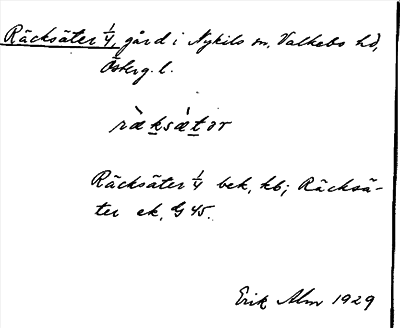 Räcksäter 1/4, gård i Nykils sn, Valkebo hd,
Österg. l.
ràksǽtər
Räcksäter 1/4 bek, kb; Räcksä-
ter ek, G 45.
Erik Alm 1929